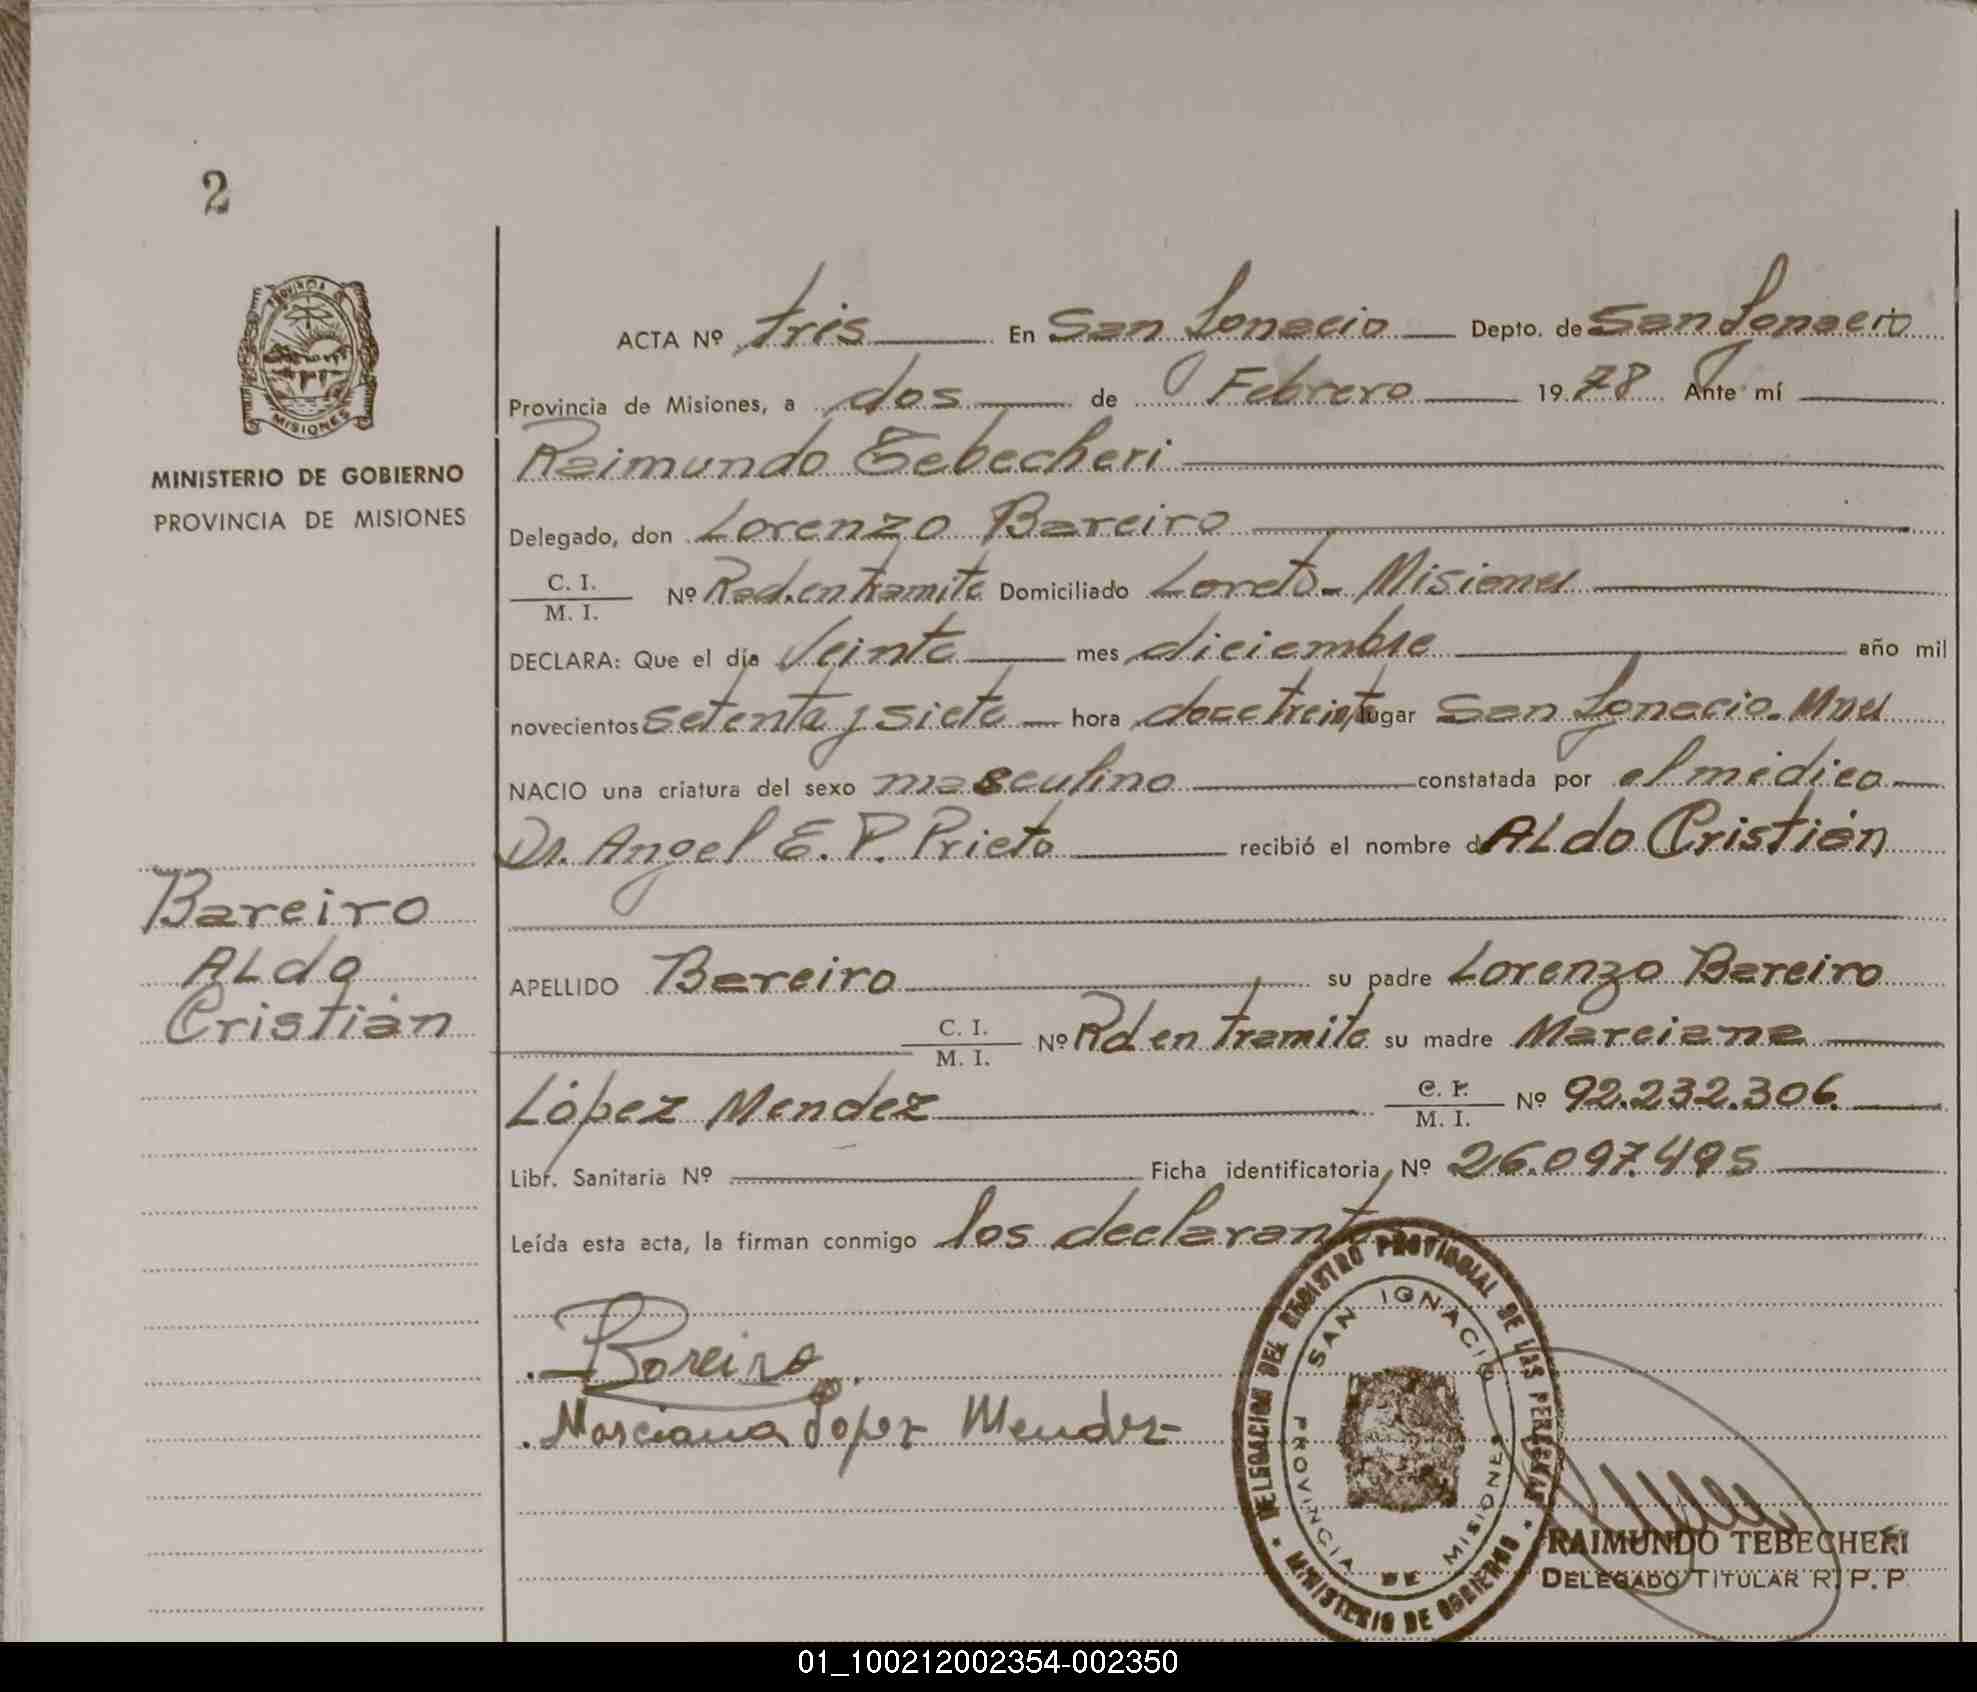 2
PROVINCIA DE
MISIONES
MINISTERIO DE GOBIERNO
PROVINCIA DE MISIONES
Bareiro
ALdo
Cristián
ACTA Nº tres En San Ignacio Depto. de San Ignacio
Provincia de Misiones, a dos de Febrero 19 78 Ante mí
Raimundo Tebecheri
Delegado, don Lorenzo Bareiro
C. I.
M. I. Nº Rad. en tramite Domiciliado Loreto - Misiones
DECLARA: Que el día Veinte mes diciembre año mil
novecientos setenta y siete hora doce treinta lugar San Ignacio. Mnes
NACIO una criatura del sexo masculino constatada por el médico
Dr. Angel E. P. Prieto recibió el nombre de ALdo Cristián
APELLIDO Bareiro su padre Lorenzo Bareiro
C. I.
M. I. Nº Rd en tramite su madre Marciana
López Mendez C. I.
M. I. Nº 92.232.306
Libr. Sanitaria Nº Ficha identificatoria Nº 26.097.495
Leída esta acta, la firman conmigo los declarante
Bareiro
Marciana Lopez Mendez
DELEGACION DEL REGISTRO PROVINCIAL DE LAS PERSONAS
MINISTERIO DE GOBIERNO
SAN IGNACIO
PROVINCIA DE MISIONES
RAIMUNDO TEBECHERI
DELEGADO TITULAR R. P. P.
01_100212002354-002350